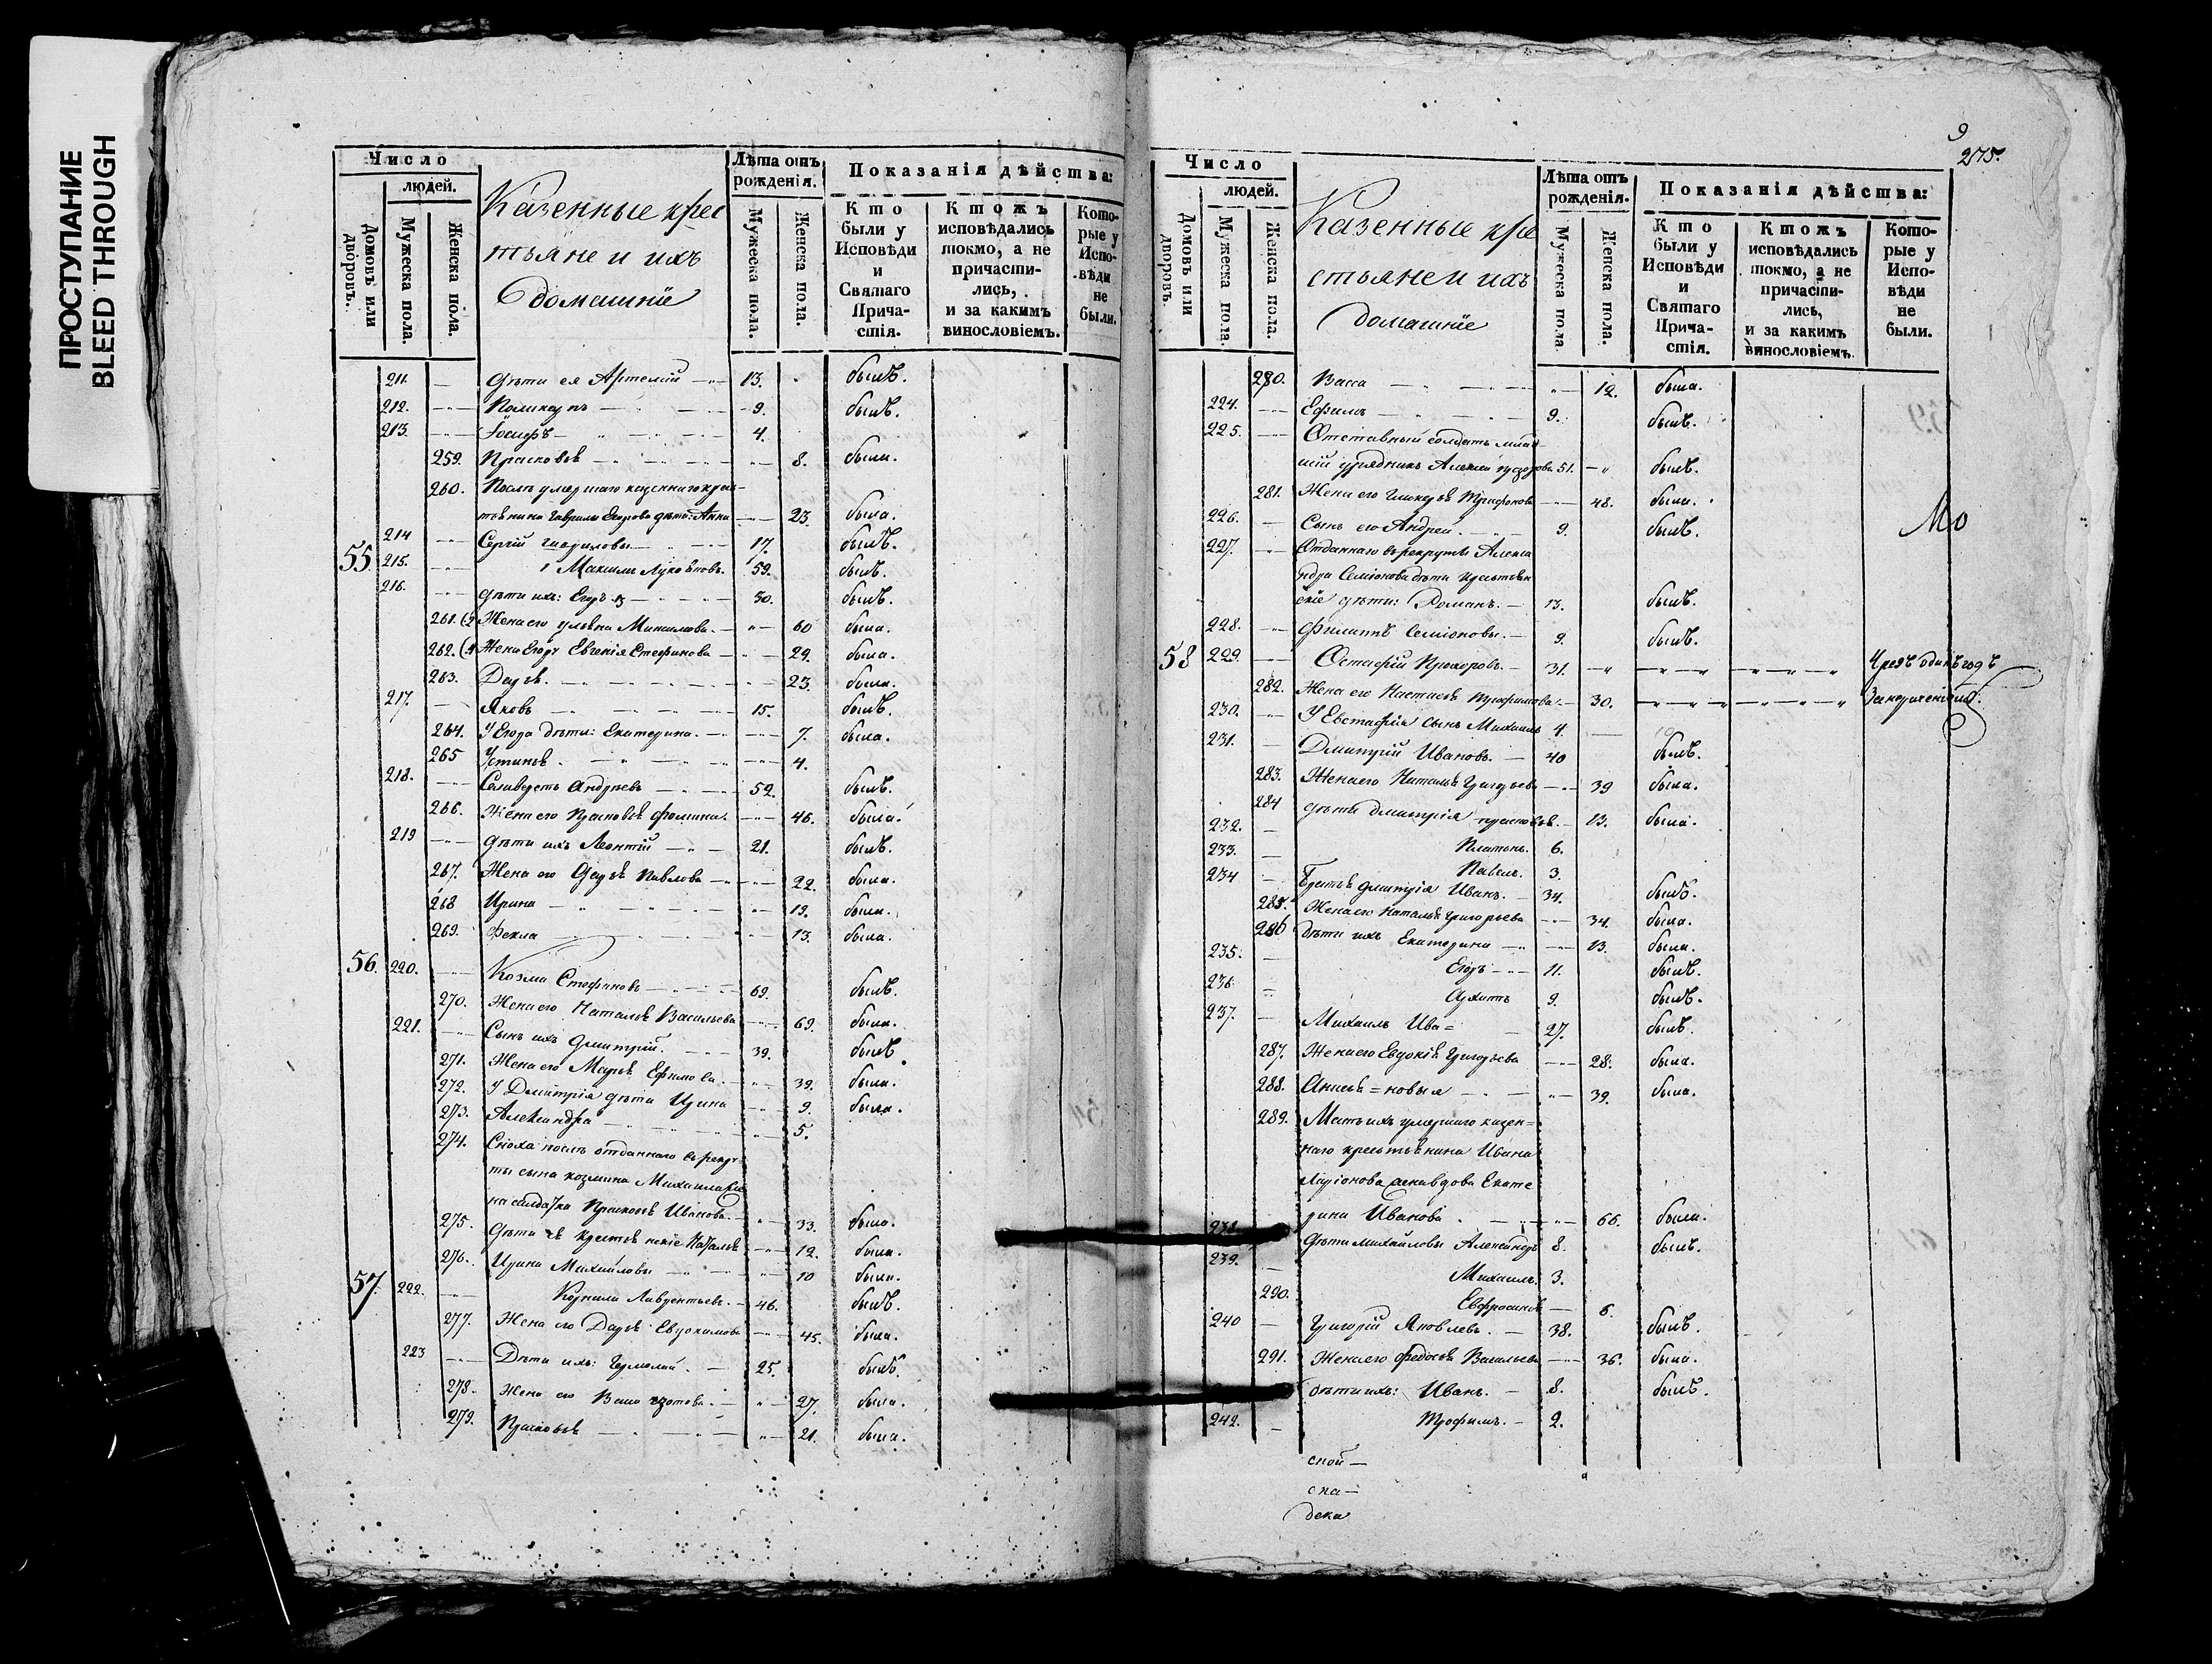 ПРОСТУПАНИЕ
BLEED THROUGH
Число
людей.
Домовъ или дворовъ.
Мужеска пола.
Женска пола.
Казенные крес
тьяне и ихъ
домашнїе
Лѣта отъ рожденія.
Мужеска пола.
Женска пола.
Показанія дѣйства:
Кто были у Исповѣди и Святаго Прича-стія.
Ктожъ исповѣдались токмо, а не причасти-лись, и за какимъ винословіемъ.
Кото-рые у Испо-вѣди не были.
211. — дѣти ея Артемій 13. былъ.
212. — Поликарпъ — 9. былъ.
213. — Іосифъ — 4.
259. Прасковья — 8. была.
260. Послѣ умершаго казеннаго крес-
тьянина Гаврилы Егорова дѣти: Анна — 23. была.
214 — Сергій Гавриловы — 17. былъ.
55 215. — Максимъ Лукояновъ. 59. былъ.
216. — дѣти ихъ: Егоръ — 30. былъ.
261. Жена его Ульяна Минаилова — 60 была.
262. Жена Егора Евгенія Стефанова — 29. была.
263. Дарья. — 23. была.
217. — Яковъ — 15. былъ.
264. У Егора дѣти: Екатерина. — 7. была.
265 Устинья. — 4.
218. — Селиверстъ Андреевъ — 52. былъ.
266. Жена его Прасковья Фомина. — 46. была.
219 — дѣти ихъ Леонтій — 21. былъ.
267. Жена его Дарья Павлова — 22. была.
268 Ирина — 19. была.
269. Фекла — 13. была.
56. 220. — Козма Стефановъ — 69. былъ.
270. Жена его Наталья Васильева — 69. была.
221. — Сынъ ихъ Дмитрій. — 39. былъ.
271. Жена его Марья Ефимова. — 39. была.
272. У Дмитрія дѣти Ирина — 9. была.
273. Александра — 5.
274. Сноха послѣ отданнаго въ рекру-
ты сына Козмина Михаила
на солдатка Прасковья Иванова. — 33. была.
275. Дѣти ея крестьянскіе Наталья — 12. была.
276. Ирина Михайловы — 10 была.
57. 222. — Корнила Лаврентьевъ. — 46. былъ.
277. Жена его Дарья Евдокимова — 45. была.
223 — Дѣти ихъ: Ермолай. — 25. былъ.
278. Жена его Васса Изотова. — 27. была.
279. Прасковья — 21. была.
9
275.
Число
людей.
Домовъ или дворовъ.
Мужеска пола.
Женска пола.
Казенные кре
стьяне и ихъ
домашнїе
Лѣта отъ рожденія.
Мужеска пола.
Женска пола.
Показанія дѣйства:
Кто были у Исповѣди и Святаго Прича-стія.
Ктожъ исповѣдались токмо, а не причасти-лись, и за какимъ винословіемъ.
Кото-рые у Испо-вѣди не были.
280. Васса — 12. была.
224. — Ефимъ — 9. былъ.
225. — Отставный солдатъ млад-
шій урядникъ Алексѣй 51. — былъ.
281. Жена его Гликерья Трифонова — 48. была.
226. — Сынъ его Андрей. — 9. былъ.
Мо
227. — Отданнаго въ рекруты Алекса
ндра Семіонова дѣти крестьян
скіе дѣти: Романъ. — 13. былъ.
228. — Филиппъ Семіоновы. — 9. былъ.
58 229. — Остафій Прохоровъ. — 31. — Чрезъ одинъ годъ
282. Жена его Настасья Трофимова. — 30. —
230. — У Евстафія сынъ Михаилъ 4. —
231. — Дмитрій Ивановъ. — 40 былъ.
283. Жена его Наталья Григорьева — 39 была.
284 дѣти Дмитрія Прасковья. — 13. была.
232. — Платонъ. 6.
233. — Павелъ. 3.
234 — Братья Дмитрія Иванъ. — 34. былъ.
285. Жена его Наталья Григорьева — 34. была.
286 дѣти ихъ Екатерина — 13. была.
235. — Егоръ — 11. былъ.
236. — Архипъ 9. былъ.
237. — Михаилъ Ива= — 27. былъ.
287. Жена его Евдокія Григорьева — 28. была.
288. Анисья = новыя — 39. была.
289. Мать ихъ умершаго казен=
наго крестьянина Ивана
Ларіонова жена вдова Екате
рина Иванова. — 66. была.
238. Дѣти Михайловы Александръ 8. былъ.
239. — Михаилъ. 3.
290. Евфросинья — 6.
240 — Григорій Яковлевъ. — 38. былъ.
291. Жена его Федосья Васильева — 36. была.
дѣти ихъ: Иванъ. — 8. былъ.
242. — Трофимъ. — 2.
спой —
сна —
дека